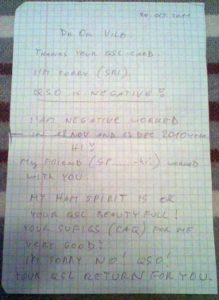 DR OM VILD.
THANKS YOUR QSL-CARD.
I'M SORRY (SRI).
QSO IS NEGATIVE!
I'AM NEGATIVE WORKED
NOV AND DEC 2010
HI!
MY FRIEND (SP......-hi) WORKED
WITH YOU.
MY HAM SPIRIT IS OF
YOUR QSL BEAUTYFULL!
YOUR SUFIGS (CAQ) FOR ME
VERY GOOD!
I'M SORRY NO! QSO!
YOUR QSL RETURN FOR YOU.